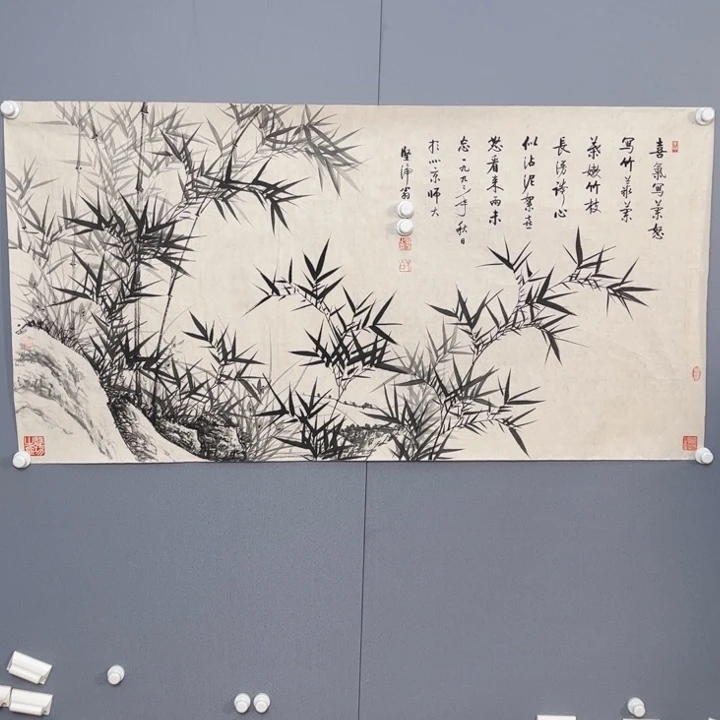 喜氣寫蘭怒
寫竹蘭
葉嫩竹枝
長漫誇心
似沾泥絮喜
怒看来兩未
忘一九九二年秋日
於北京師大
堅淨翁